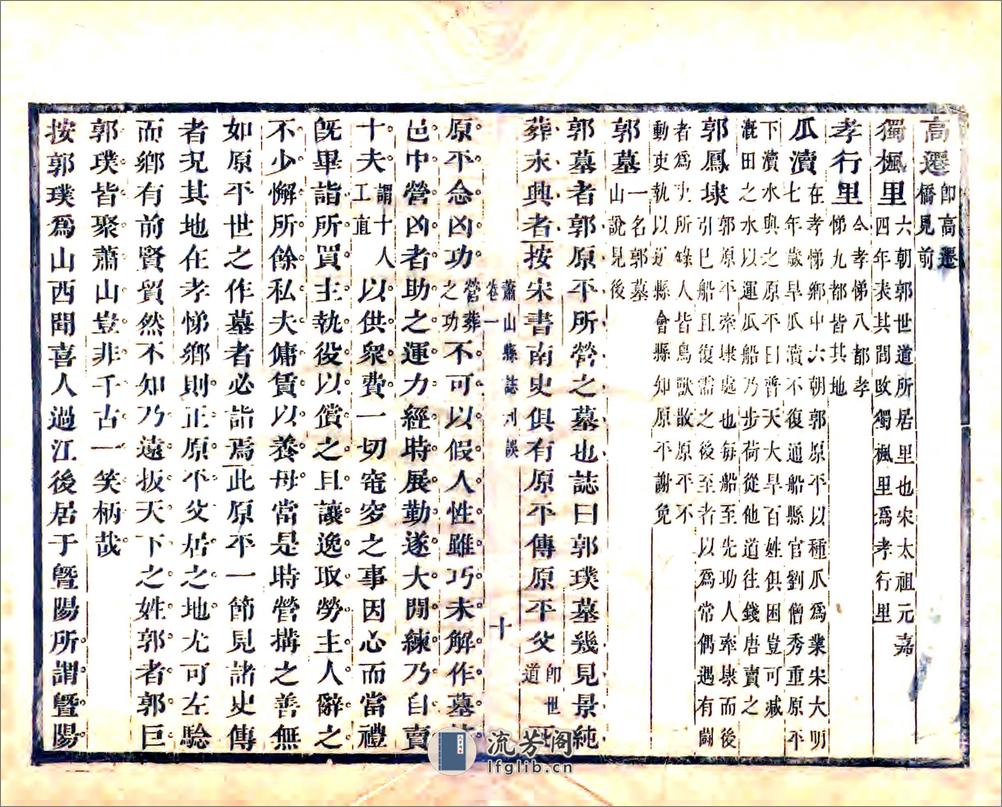 高遷即高遷
橋見前
獨楓里六朝郭世道所居里也宋太祖元嘉
四年表其閭改獨楓里為孝行里
孝行里今孝悌八都孝
悌九都皆其地
瓜瀆在孝悌鄉中六朝郭原平以種瓜為業宋大明
七年歲旱瓜瀆不復通船縣官劉僧秀重原平
下瀆水與之原平曰普天大旱百姓俱困豈可減
溉田之水以運瓜船乃步荷從他道往錢唐賣之
郭鳳埭郭原平牽埭處也每船至先功人牽埭而後
引已船且復需之後至者以為常偶遇有鬭
者為吏所錄人皆鳥獸散原平不
動吏執以送縣會縣知原平謝免
郭墓一名郭墓
山說見後
郭墓者郭原平所營之墓也誌曰郭璞墓幾見景純
葬永興者按宋書南史俱有原平傳原平父即世
道
蕭山縣誌刊誤
卷一
十
原平念凶功營葬
之功不可以假人性雖巧未解作墓
邑中營凶者助之運力經時展勤遂大閒練乃自賣
十夫謂十人
工直以供衆費一切窀穸之事因心而當禮
旣畢詣所買主執役以償之且讓逸取勞主人辭之
不少懈所餘私夫傭賃以養母當是時營搆之善無
如原平世之作墓者必詣焉此原平一節見諸史傳
者况其地在孝悌鄉則正原平父居之地尤可左驗
而鄉有前賢貿然不知乃遠扳天下之姓郭者郭巨
郭璞皆聚蕭山豈非千古一笑柄哉
按郭璞為山西聞喜人過江後居于暨陽所謂暨陽
流芳閣
lfglib.cn